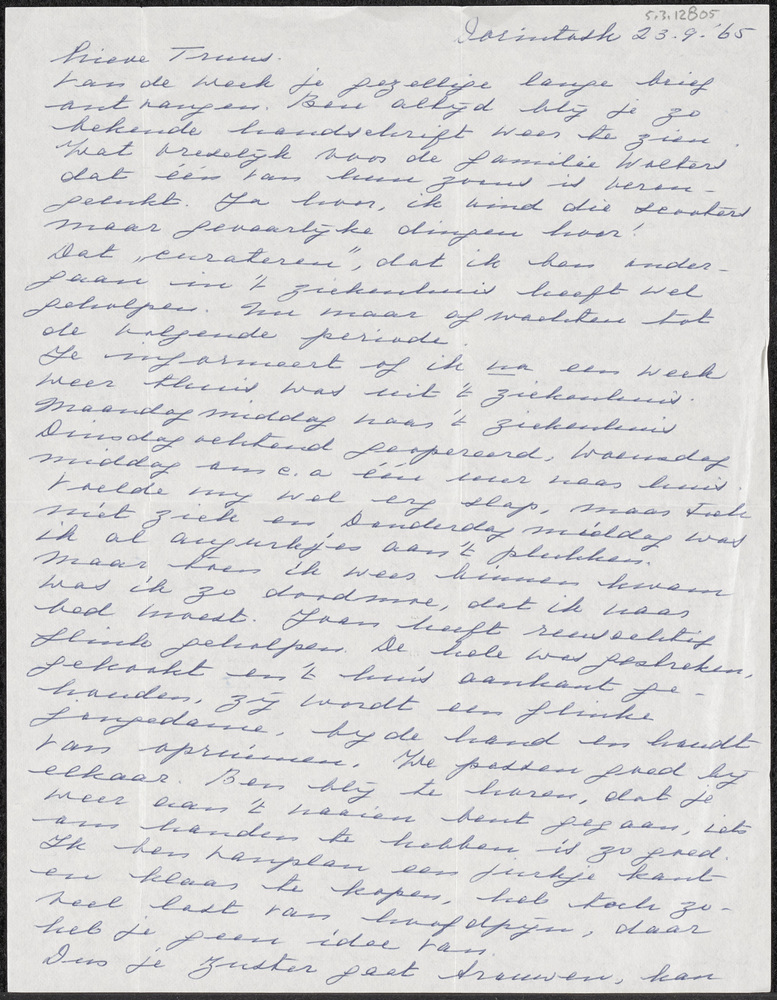 5.3.12B05
Dorintosh 23.9.'65
Lieve Truus.
Van de week je gezellige lange brief
ontvangen. Ben altijd blij je zo
bekende handschrift weer te zien.
Wat vreselijk voor de familie Wolters
dat één van hun zoons is veron-
gelukt. Ja hoor, ik vind die scooters
maar gevaarlijke dingen hoor!
Dat „curateren", dat ik ben onder-
gaan in 't ziekenhuis heeft wel
geholpen. Nu maar afwachten tot
de volgende periode.
Je informeert of ik na een week
weer thuis was uit 't ziekenhuis.
Maandag middag naar 't ziekenhuis
Dinsdag ochtend geopereerd, Woensdag
middag om c.a één uur naar huis.
Voelde mij wel erg slap, maar toch
niet ziek en Donderdag middag was
ik al augurkjes aan 't plukken.
Maar toen ik weer binnen kwam
was ik zo doodmoe, dat ik naar
bed moest. Joan heeft reusachtig
flink geholpen. De hele was gestreken,
gekookt en 't huis aankant ge-
houden, zij wordt een flinke
jongedame, bij de hand en houdt
van opruimen. We passen goed bij
elkaar. Ben blij te horen, dat je
weer aan 't naaien bent gegaan, iets
om handen te hebben is zo goed.
Ik ben vanplan een jurkje kant
en klaar te kopen, heb toch zo-
veel last van hoofdpijn, daar
heb je geen idee van.
Dus je zuster gaat trouwen, kan